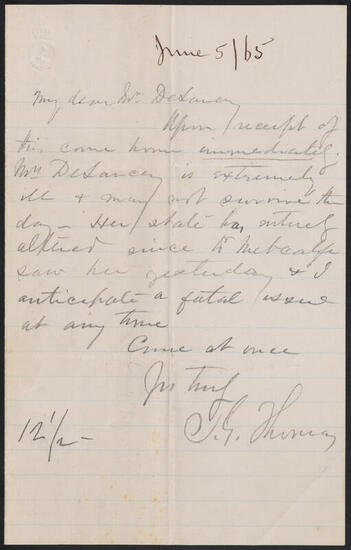 June 5/65
My dear Mr. DeLancey
Upon receipt of
this come home immediately.
Mrs DeLancey is extremely
ill & may not survive the
day - Her state has entirely
altered since Dr Metcalfe
saw her yesterday & I
anticipate a fatal issue
at any time
Come at once
Yrs truly
T. G. Thomas
12 1/2 -